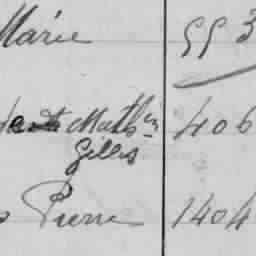 Marie 553
Math in 406
Gilles
Pierre 1404